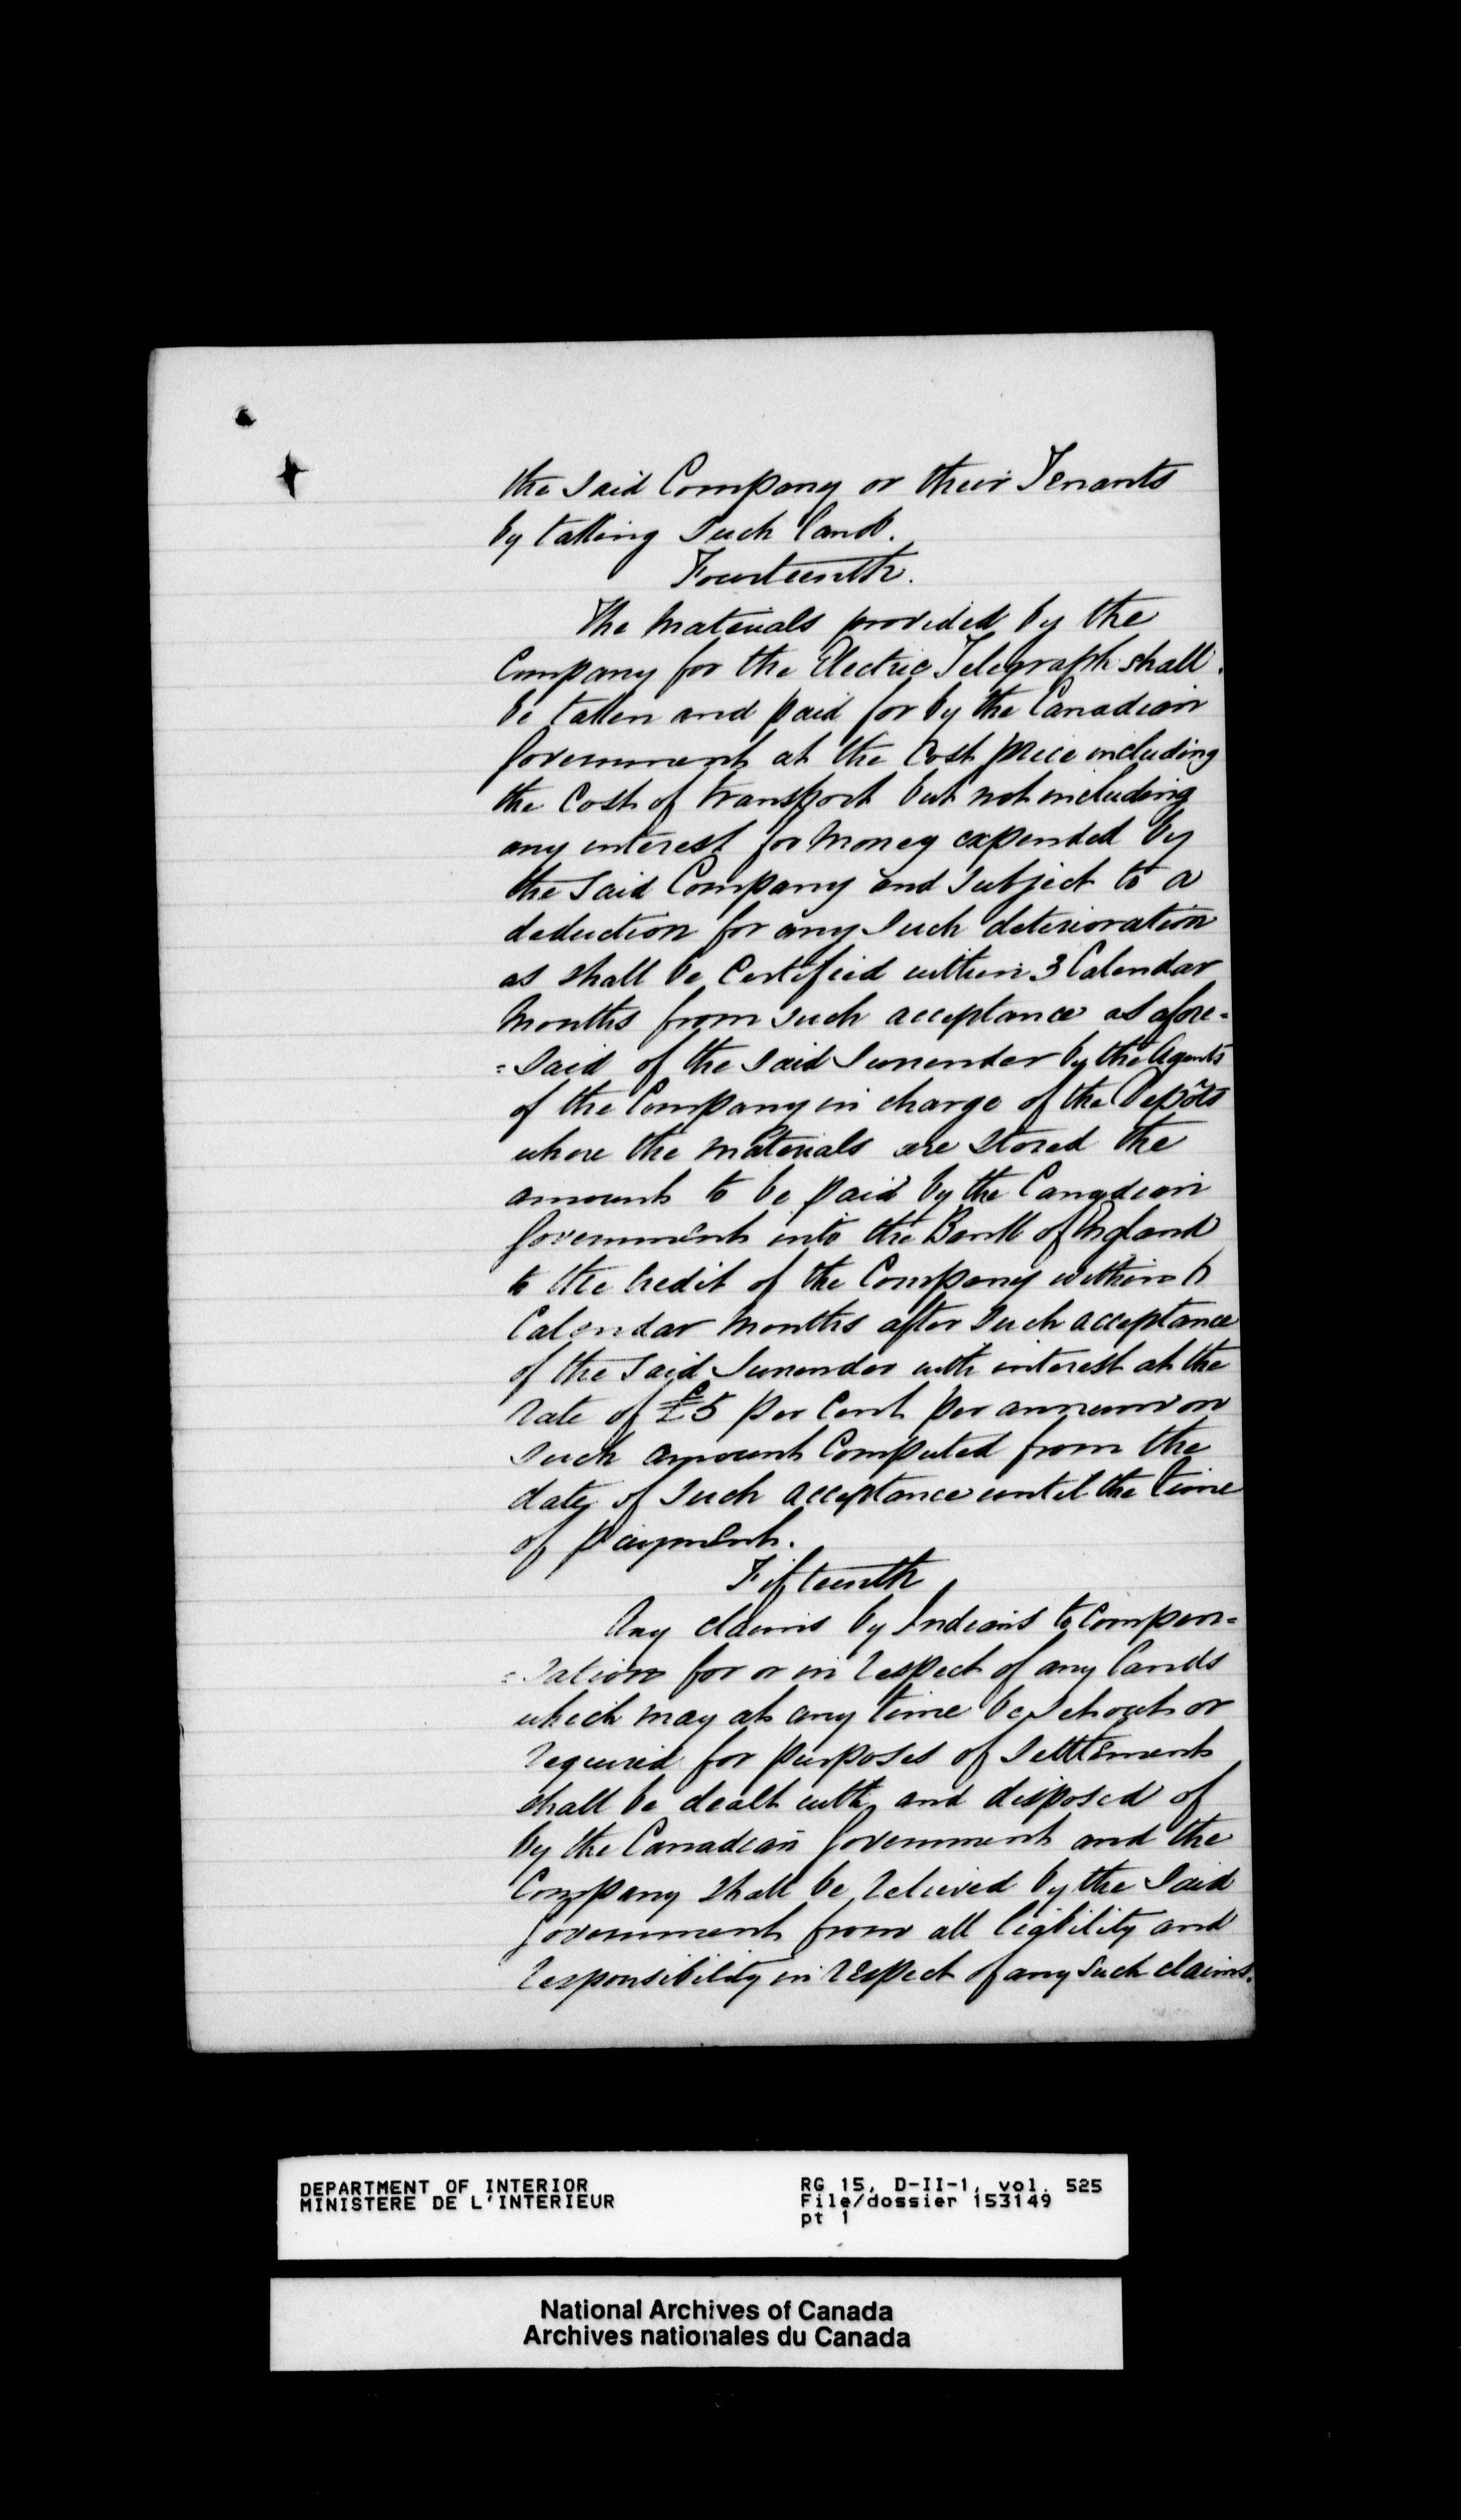 the said Company or their Tenants
by taking such land.
Fourteenth.
The Materials provided by the
Company for the Electric Telegraph shall
be taken and paid for by the Canadian
Government at the Cost price including
the Cost of transport but not including
any interest for Money expended by
the said Company and subject to a
deduction for any such deterioration
as shall be Certified within 3 Calendar
Months from such acceptance as afore=
=said of the said Surrender by the Agents
of the Company in charge of the Depôts
where the Materials are stored the
amount to be paid by the Canadian
Government into the Bank of England
to the Credit of the Company within 6
Calendar Months after such acceptance
of the said Surrender with interest at the
rate of £5 per Cent per annum on
such amount Computed from the
date of such acceptance until the time
of payment.
Fifteenth
Any claims by Indians to Compen=
=sation for or in respect of any Lands
which may at any time be set out or
required for purposes of settlement
shall be dealt with and disposed of
by the Canadian Government and the
Company shall be relieved by the said
Government from all liability and
responsibility in respect of any such claims.
DEPARTMENT OF INTERIOR
MINISTERE DE L'INTERIEUR
RG 15, D-II-1, vol. 525
File/dossier 153149
pt 1
National Archives of Canada
Archives nationales du Canada